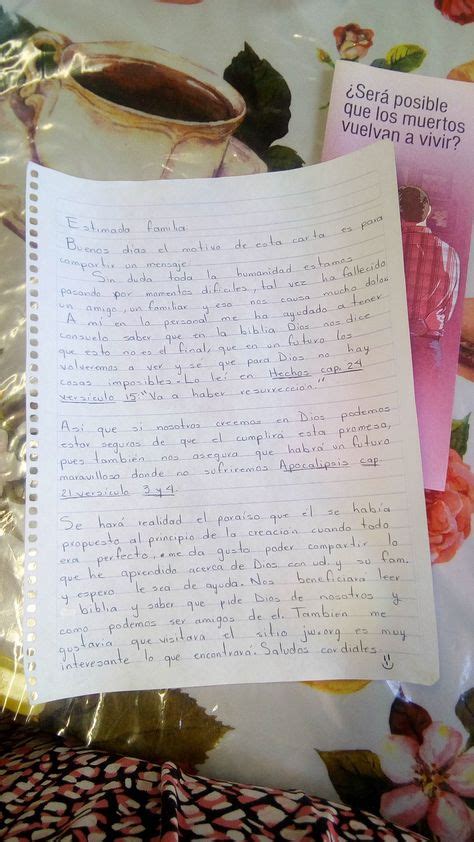 ¿Será posible
que los muertos
vuelvan a vivir?
Estimada familia
Buenos días el motivo de esta carta es para
compartir un mensaje
Sin duda toda la humanidad estamos
pasando por momentos difíciles, tal vez ha fallecido
un amigo, un familiar y eso nos causa mucho dolor
A mí en lo personal me ha ayudado a tener
consuelo saber que en la biblia Dios nos dice
que esto no es el final, que en un futuro los
volveremos a ver y se que para Dios no hay
cosas imposibles. Lo leí en Hechos cap. 24
versículo 15: "Va a haber resurrección."
Así que si nosotros creemos en Dios podemos
estar seguros de que el cumplirá esta promesa,
pues también nos asegura que habrá un futuro
maravilloso donde no sufriremos Apocalipsis cap.
21 versículo 3 y 4.
Se hará realidad el paraíso que el se había
propuesto al principio de la creación cuando todo
era perfecto, me da gusto poder compartir lo
que he aprendido acerca de Dios con ud. y su fam.
y espero le sea de ayuda. Nos beneficiará leer
biblia y saber que pide Dios de nosotros y
como podemos ser amigos de el. También me
gustaría que visitará el sitio jw.org es muy
interesante lo que encontrará. Saludos cordiales.